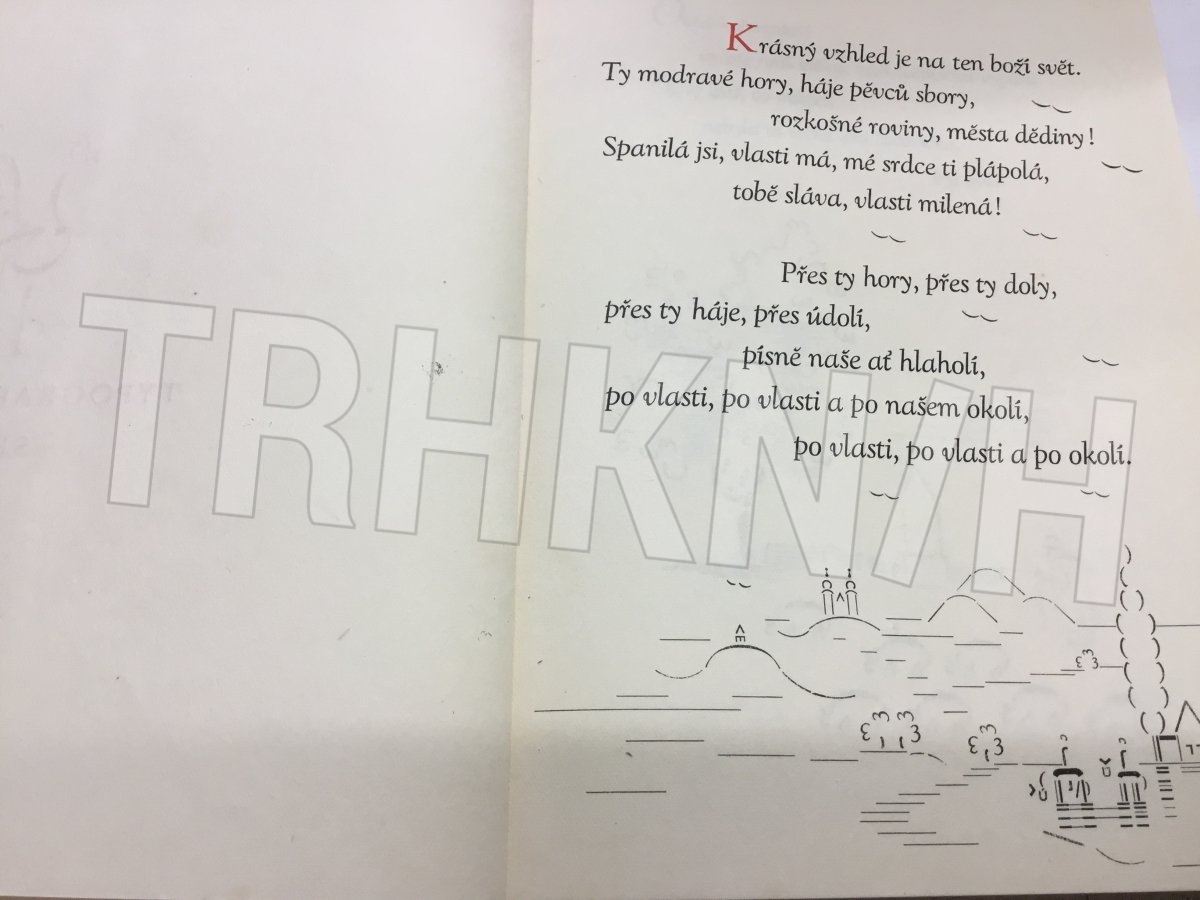 Krásný vzhled je na ten boží svět.
Ty modravé hory, háje pěvců sbory,
rozkošné roviny, města dědiny!
Spanilá jsi, vlasti má, mé srdce ti plápolá,
tobě sláva, vlasti milená!
Přes ty hory, přes ty doly,
přes ty háje, přes údolí,
písně naše ať hlaholí,
po vlasti, po vlasti a po našem okolí,
po vlasti, po vlasti a po okolí.
TRHKNIH